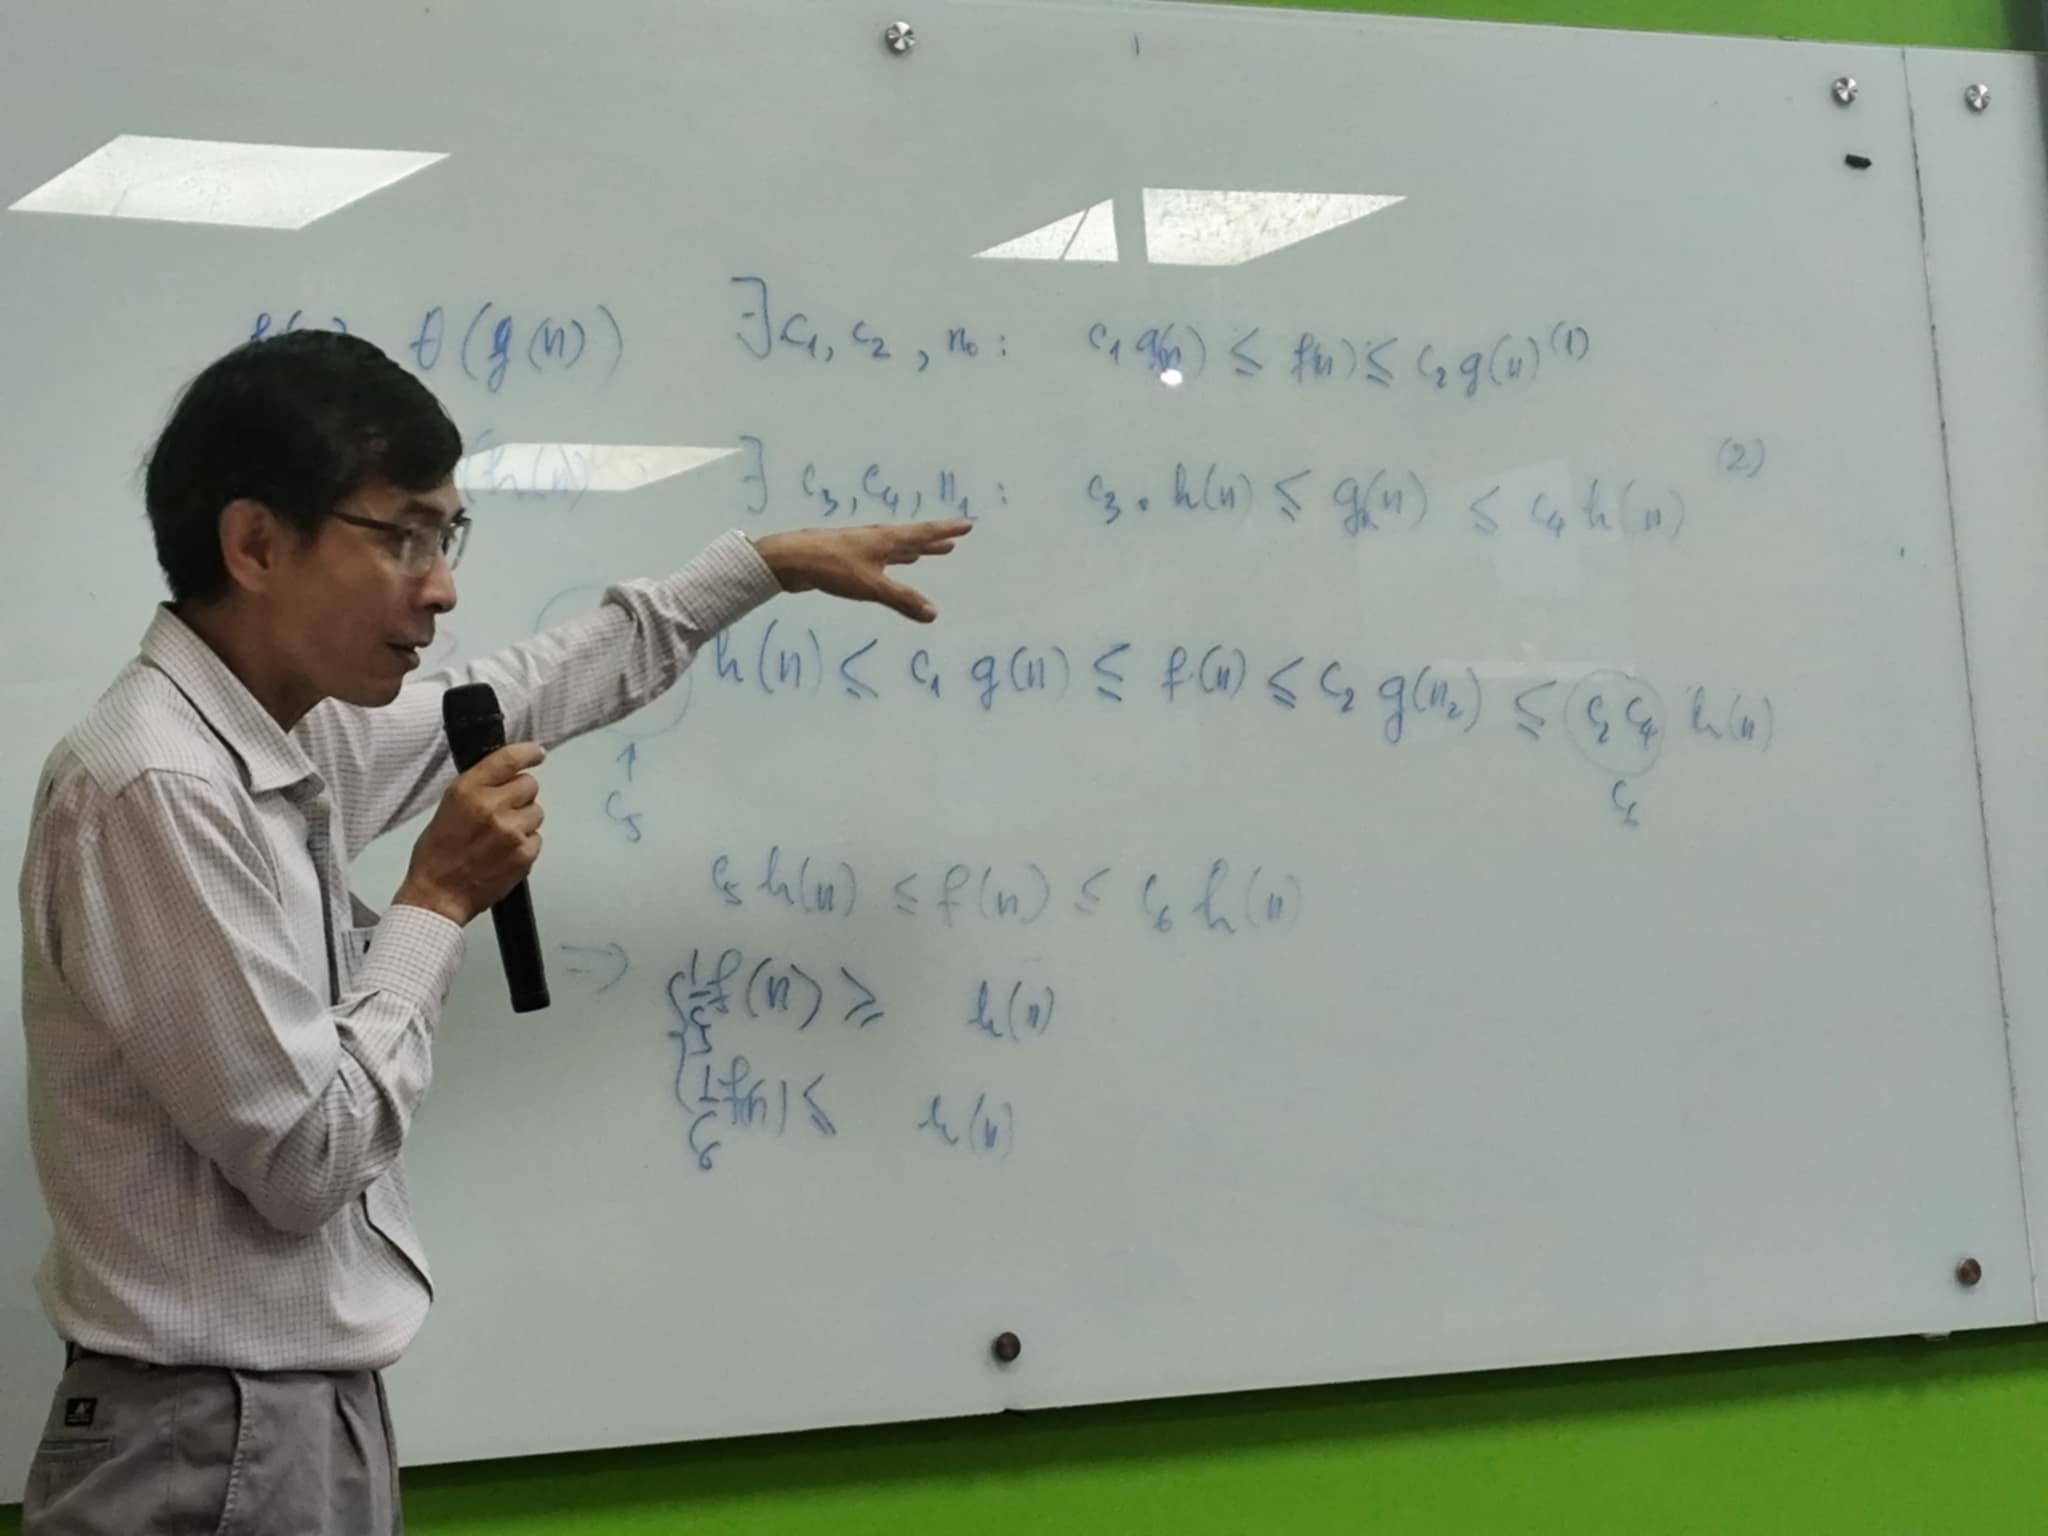 θ(g(n)) ∃ c₁, c₂, n₀: c₁ g(n) ≤ f(n) ≤ c₂ g(n) (1)
(h(n) ∃ c₃, c₄, n₁: c₃. h(n) ≤ g(n) ≤ c₄ h(n) (2)
h(n) ≤ c₁ g(n) ≤ f(n) ≤ c₂ g(n₂) ≤ c₂ c₄ h(n)
↑
c₅ c₆
c₅ h(n) ≤ f(n) ≤ c₆ h(n)
=> { 1/c₅ f(n) ≥ h(n)
1/c₆ f(n) ≤ h(n)